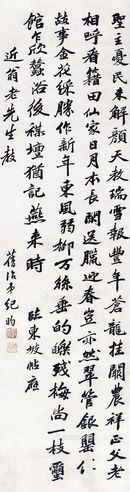 聖主憂民未解顏天教瑞雪報豐年蒼龍挂闕農祥正父老
相呼看籍田仙家日月本長閑送臘迎春豈亦然翠管銀罌傳
故事金花綵勝作新年東風弱柳萬絲垂的皪殘梅尚一枝璽
館乍欣蠶浴後禖壇猶記燕來時 臨東坡帖應
近翁老先生教
舊治弟紀昀